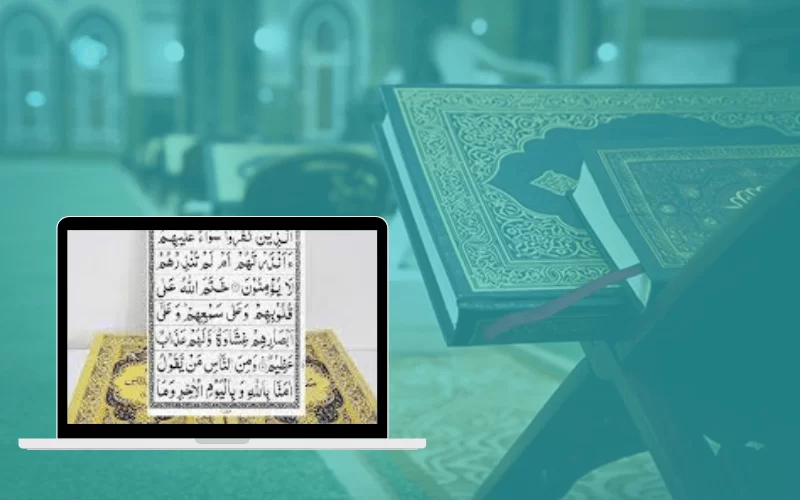 الَّذِيْنَ كَفَرُوْا سَوَآءٌ عَلَيْهِمْ
ءَاَنْذَرْتَهُمْ اَمْ لَمْ تُنْذِرْهُمْ
لَا يُؤْمِنُوْنَ ۝ خَتَمَ اللّٰهُ عَلٰى
قُلُوْبِهِمْ وَعَلٰى سَمْعِهِمْ وَ عَلٰٓى
اَبْصَارِهِمْ غِشَاوَةٌ وَّلَهُمْ عَذَابٌ
عَظِيْمٌ ۝ وَمِنَ النَّاسِ مَنْ يَّقُوْلُ
اٰمَنَّا بِاللّٰهِ وَ بِالْيَوْمِ الْاٰخِرِ وَمَا